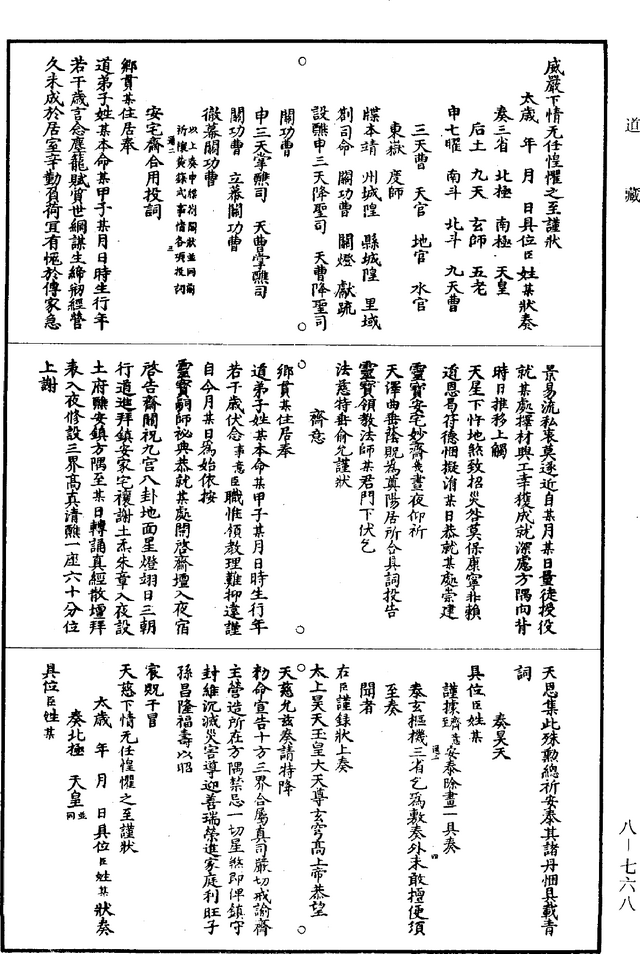 道藏
威嚴下情无任惶懼之至謹狀
太歲年月日具位臣姓某狀奏
奏三省 北極 南極 天皇
后土 九天 玄師 五老
申七曜 南斗 北斗 九天曹
三天曹 天官 地官 水官
東嶽 度師
牒本靖 州城隍 縣城隍 里域
劄司命 關功曹 關燈 獻疏
設醮申三天降聖司 天曹降聖司
關功曹
申三天掌醮司 天曹掌醮司
關功曹 立幕關功曹
徹幕關功曹
以上奏申牒劄關狀並同前
祈禳黃籙式事情各項投詞
安宅齋合用投詞
鄉貫某住居奉
道弟子姓某本命某甲子某月日時生行年
若干歲言念塵籠賦質世網謀生締剏經營
久未成於居室辛勤負荷冝有愧於傳家急
景易流私衷莫遂近自某月某日量徒授役
就某處擇材興工幸獲成就深慮方隅向背
時日推移上觸
天星下忤地煞致招災咎莫保康寧非賴
道恩曷符德悃擬消某日恭就某處崇建
靈寶安宅妙齋幾晝夜仰祈
天澤曲垂蔭貺為奠陽居所合具詞投告
靈寶領教法師某君門下伏乞
法慈特垂俞允謹狀
齋意
鄉貫某住居奉
道弟子姓某本命某甲子某月日時生行年
若干歲伏念事意臣職惟領教理難抑違謹
自今月某日為始依按
靈寶嗣師祕典恭就某處開啓齋壇入夜宿
啓告齋關祝九宮八卦地面星燈翊日三朝
行道進拜鎮安家宅禳謝土炁朱章入夜設
土府醮安鎮方隅至某日轉誦真經散壇拜
表入夜修設三界高真清醮一座六十分位
上謝
天恩集此殊勳總祈安奉其諸丹悃具載青
詞
奏昊天
具位臣姓某
謹據齋意至安泰除畫一具奏
奏玄樞機三省乞為敷奏外未敢擅便須
至奏
聞者
右臣謹錄狀上奏
太上昊天玉皇大天尊玄穹高上帝恭望
天慈允兹奏請特降
勑命宣告十方三界合屬真司嚴切戒諭齋
主營造所在方隅禁忌一切星煞即俾鎮守
封維沉滅災害導迎善瑞榮進家庭利旺子
孫昌隆福壽以昭
宸貺干冒
天慈下情无任惶懼之至謹狀
太歲年月日具位臣姓某狀奏
奏北極 天皇並同
具位臣姓某
八－七六八